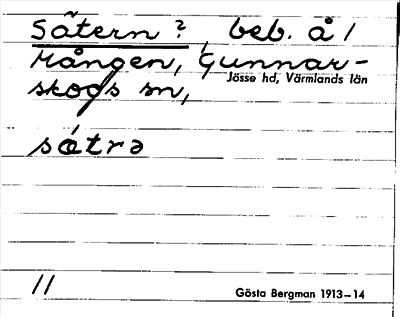 Sätern ?, beb. å 1
Rången, Gunnar-
skogs sn,
Jösse hd, Värmlands län
sátrə
11
Gösta Bergman 1913–14